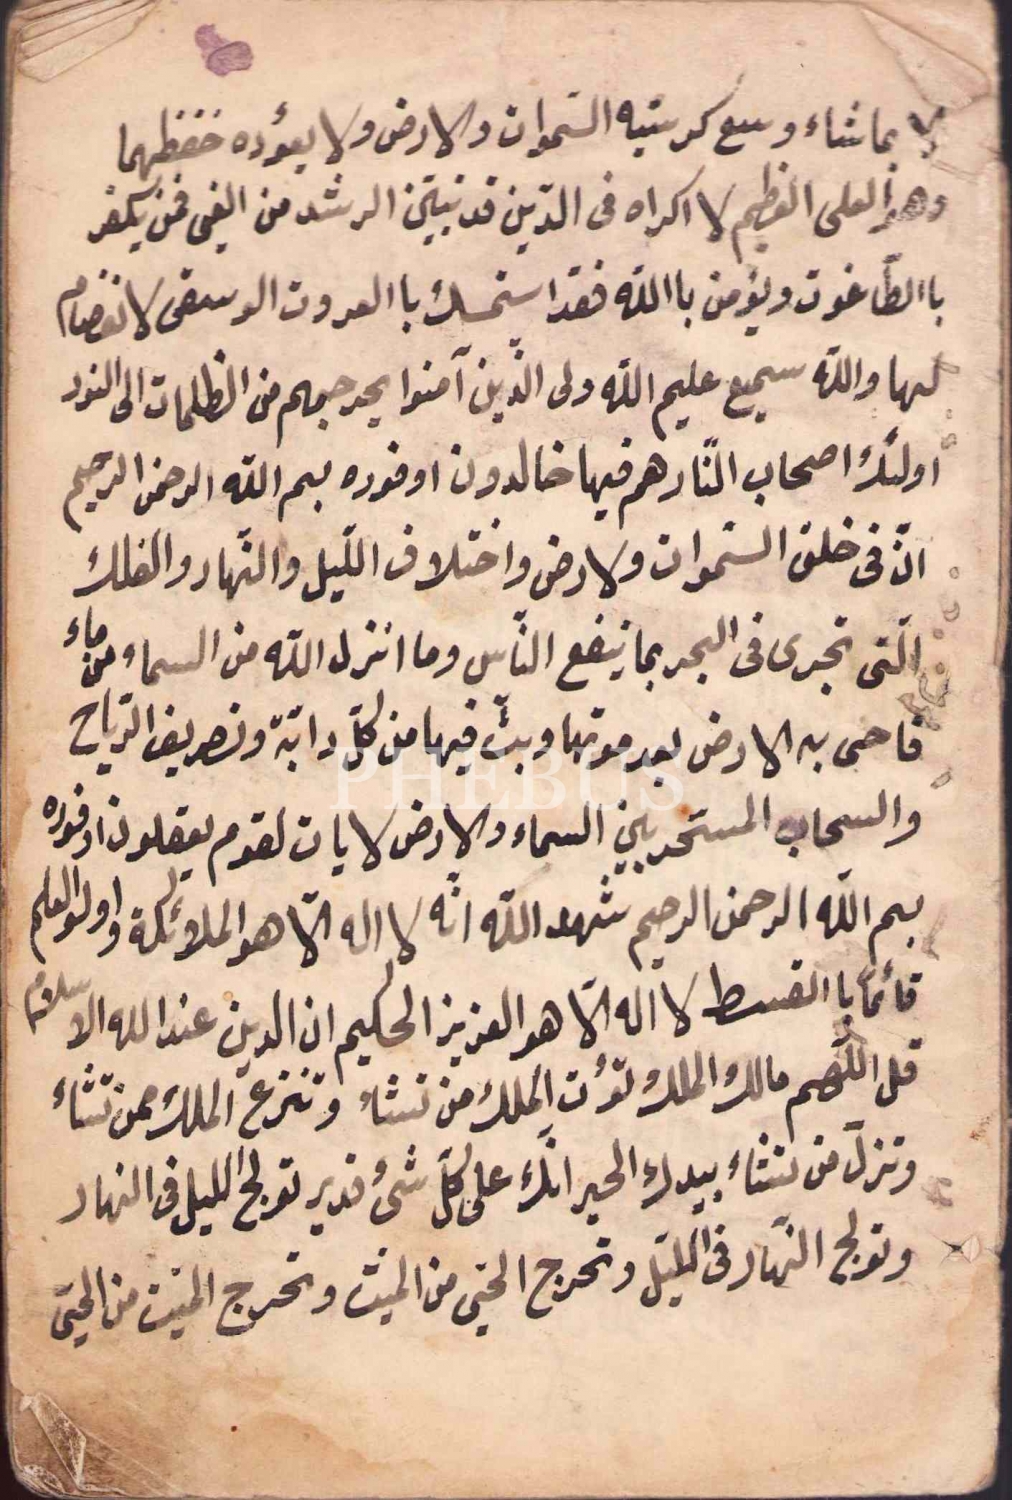 لا بماشاء وسع كرسيه السّموات والارض ولا يعؤده حفظهما
وهو العلى العظيم لا اكراه فى الدّين قد تبيّن الرشد من الغى فمن يكفر
باالطّاغوت ويؤمن باالله فقد استمسك باالعروت الوسقى لانفصام
لها والله سميع عليم الله ولى الّذين آمنوا يخرجهم من الظلمات الى النور
اولئك اصحاب النّار هم فيها خالدون اوقوره بسم الله الرحمن الرحيم
انّ فى خلق السّموات ولارض واختلاف اللّيل والنّهار والفلك
الّتى تجرى فى البحر بما ينفع النّاس وما انزل الله من السماء من ماء
فاحى به الارض بعد موتها وبثّ فيها من كلّ دابّة وتصريف الرّياح
والسحاب المستخر بين السماء والارض لايات لقوم يعقلون اوقوره
بسم الله الرحمن الرحيم شهد الله انّه لا اله الّا هو الملائكة واولو العلم
قائمًا باالقسط لا اله الّا هو العزيز الحكيم ان الدين عند الله الاسلام
قل اللّهم مالك الملك تؤت الملك من تشاء وتنزع الملك ممن تشاء
وتزلّ من تشاء بيدك الخير انّك على كلّ شئ قدير تولج الليل فى النهار
وتولج النّهار فى اللّيل وتخرج الحىّ من الميّت وتخرج الميّت من الحىّ
PHEBUS